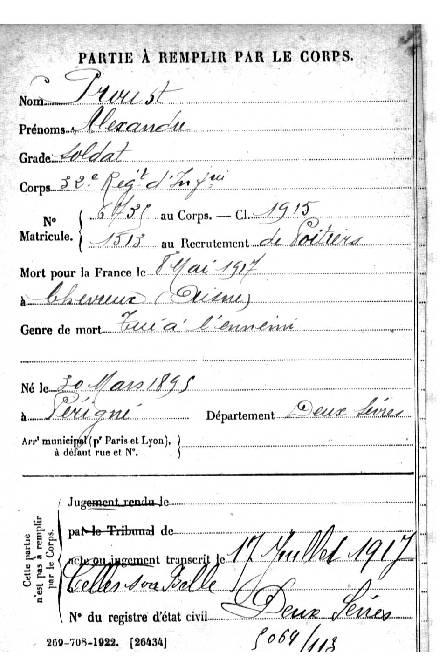 PARTIE À REMPLIR PAR LE CORPS.
Nom Proust
Prénoms Alexandre
Grade Soldat
Corps 32e Regt d'Infrie
N° Matricule. { 6735 au Corps. — Cl. 1915
1513 au Recrutement de Poitiers
Mort pour la France le 8 Mai 1917
à Chevreux (Aisne)
Genre de mort Tué à l'ennemi
Né le 30 Mars 1895
à Périgné Département Deux Sèvres
Arrt municipal (pr Paris et Lyon), }
à défaut rue et N°.
Cette partie n'est pas à remplir par le Corps.
Jugement rendu le
par le Tribunal de
acte ou jugement transcrit le 17 Juillet 1917
Celles sur Belle
Deux Sèvres
N° du registre d'état civil
5064/113
269-708-1922. [26434]